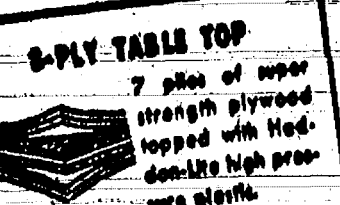 8-PLY TABLE TOP
7 plies of super
strength plywood
topped with Hed-
don-Lite high pres-
sure plastic.